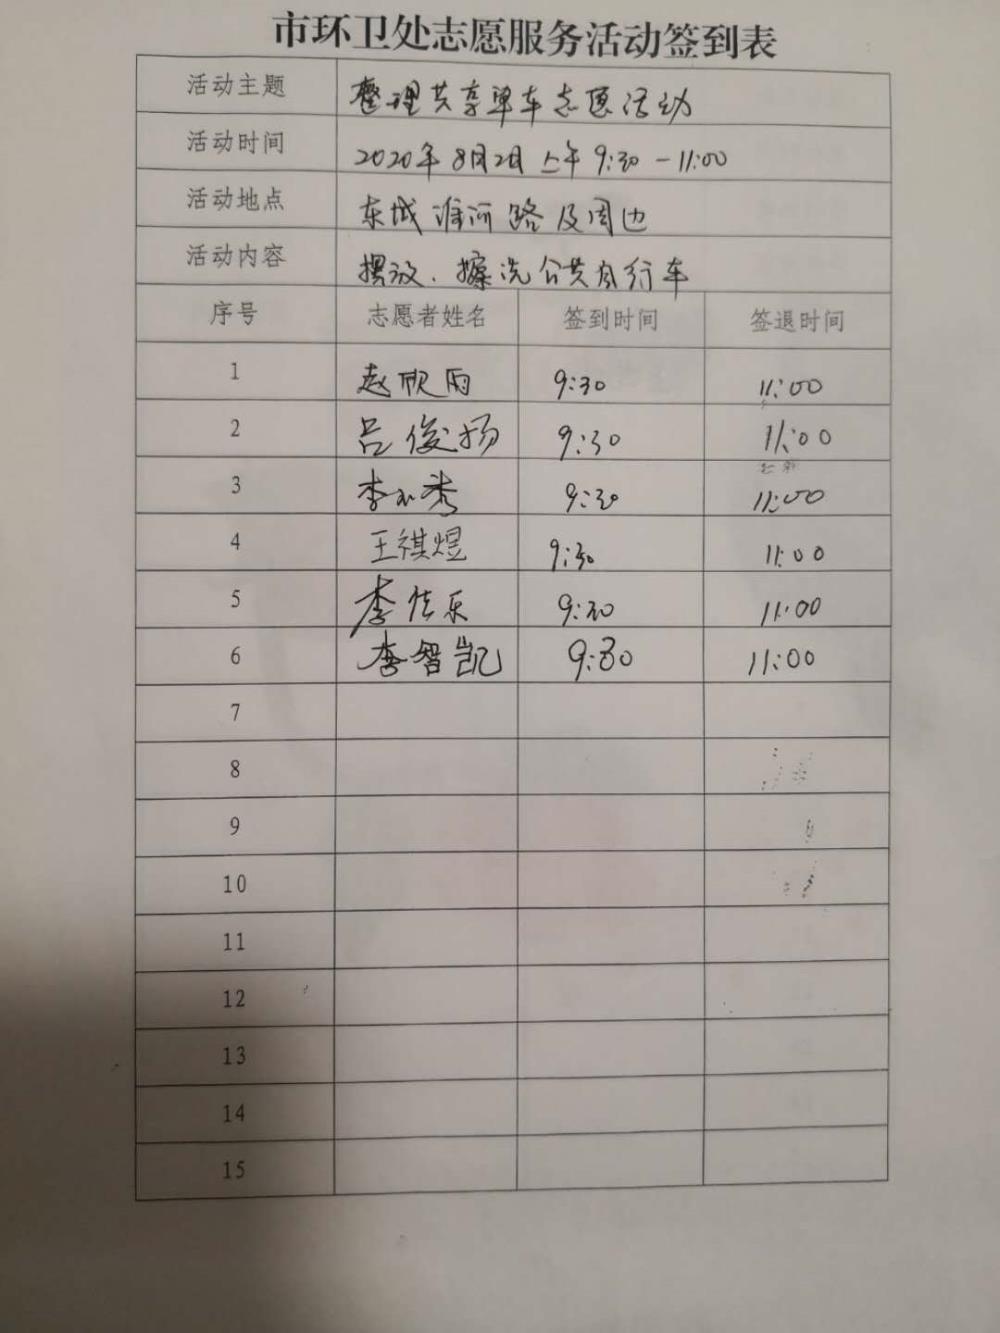 市环卫处志愿服务活动签到表
活动主题 整理共享单车志愿活动
活动时间 2020年8月2日上午9:30-11:00
活动地点 东城淮河路及周边
活动内容 摆放、擦洗公共自行车
序号 志愿者姓名 签到时间 签退时间
1 赵欣雨 9:30 11:00
2 吕俊扬 9:30 11:00
3 李小秀 9:30 11:00
4 王祺煜 9:30 11:00
5 李佳乐 9:30 11:00
6 李智凯 9:30 11:00
7
8
9
10
11
12
13
14
15